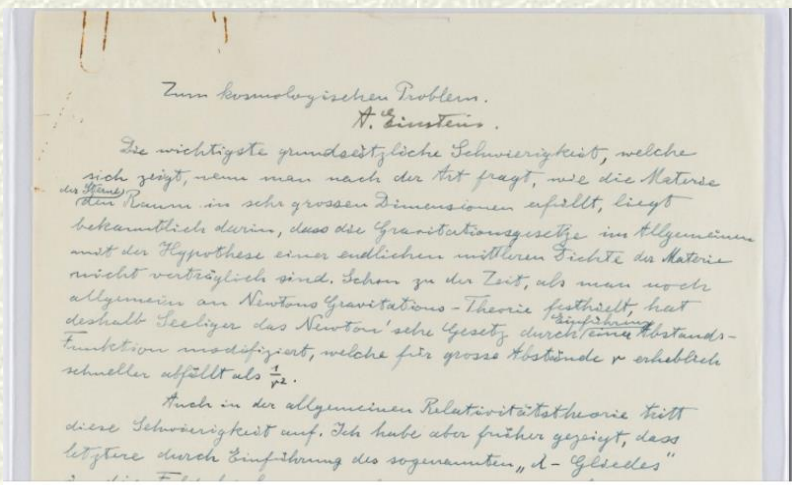 Zum kosmologischen Problem.
A. Einstein.
Die wichtigste grundsätzliche Schwierigkeit, welche
sich zeigt, wenn man nach der Art fragt, wie die Materie
der Sterne
den Raum in sehr grossen Dimensionen erfüllt, liegt
bekanntlich darin, dass die Gravitationsgesetze im Allgemeinen
mit der Hypothese einer endlichen mittleren Dichte der Materie
nicht verträglich sind. Schon zu der Zeit, als man noch
allgemein an Newtons Gravitations-Theorie festhielt, hat
Einführung
deshalb Seeliger das Newton'sche Gesetz durch eine Abstands-
Funktion modifiziert, welche für grosse Abstände r erheblich
schneller abfällt als 1/r².
Auch in der allgemeinen Relativitätstheorie tritt
diese Schwierigkeit auf. Ich habe aber früher gezeigt, dass
letztere durch Einführung des sogenannten „λ-Gliedes"